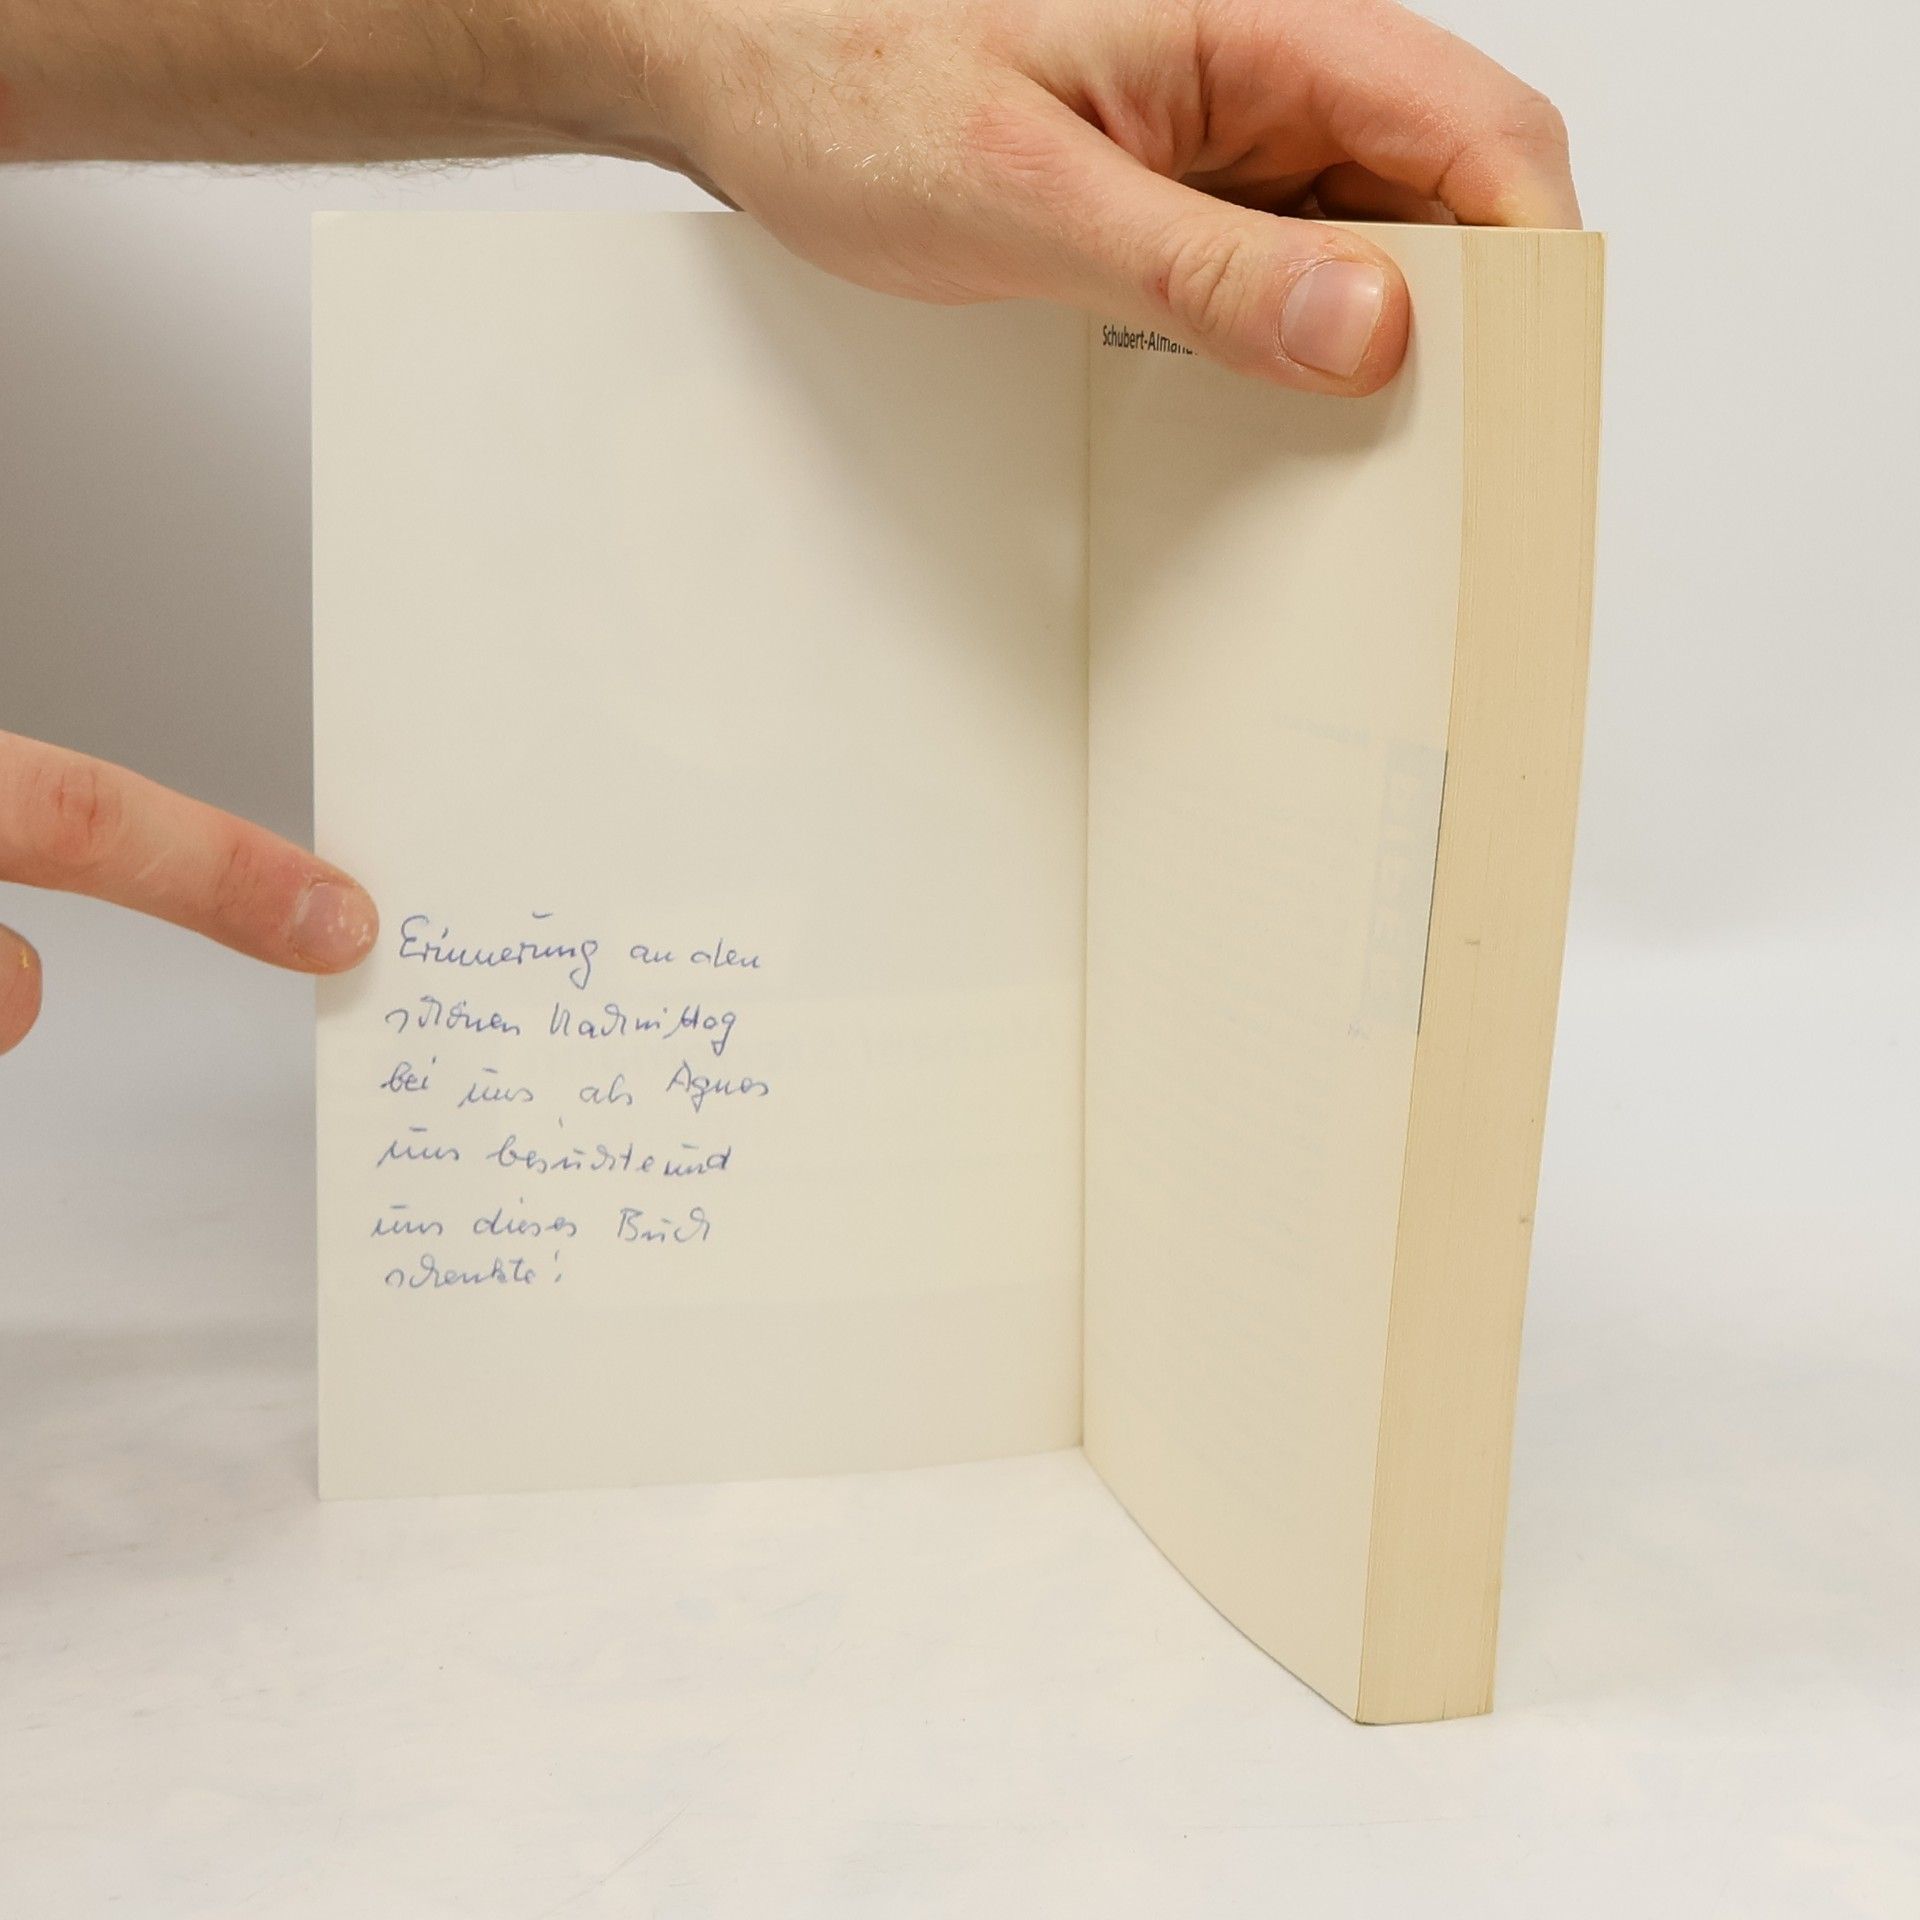 Schubert-Alman
Erinnerung an den
schönen Nachmittag
bei uns als Agnes
uns besuchte und
uns dieses Buch
schenkte!